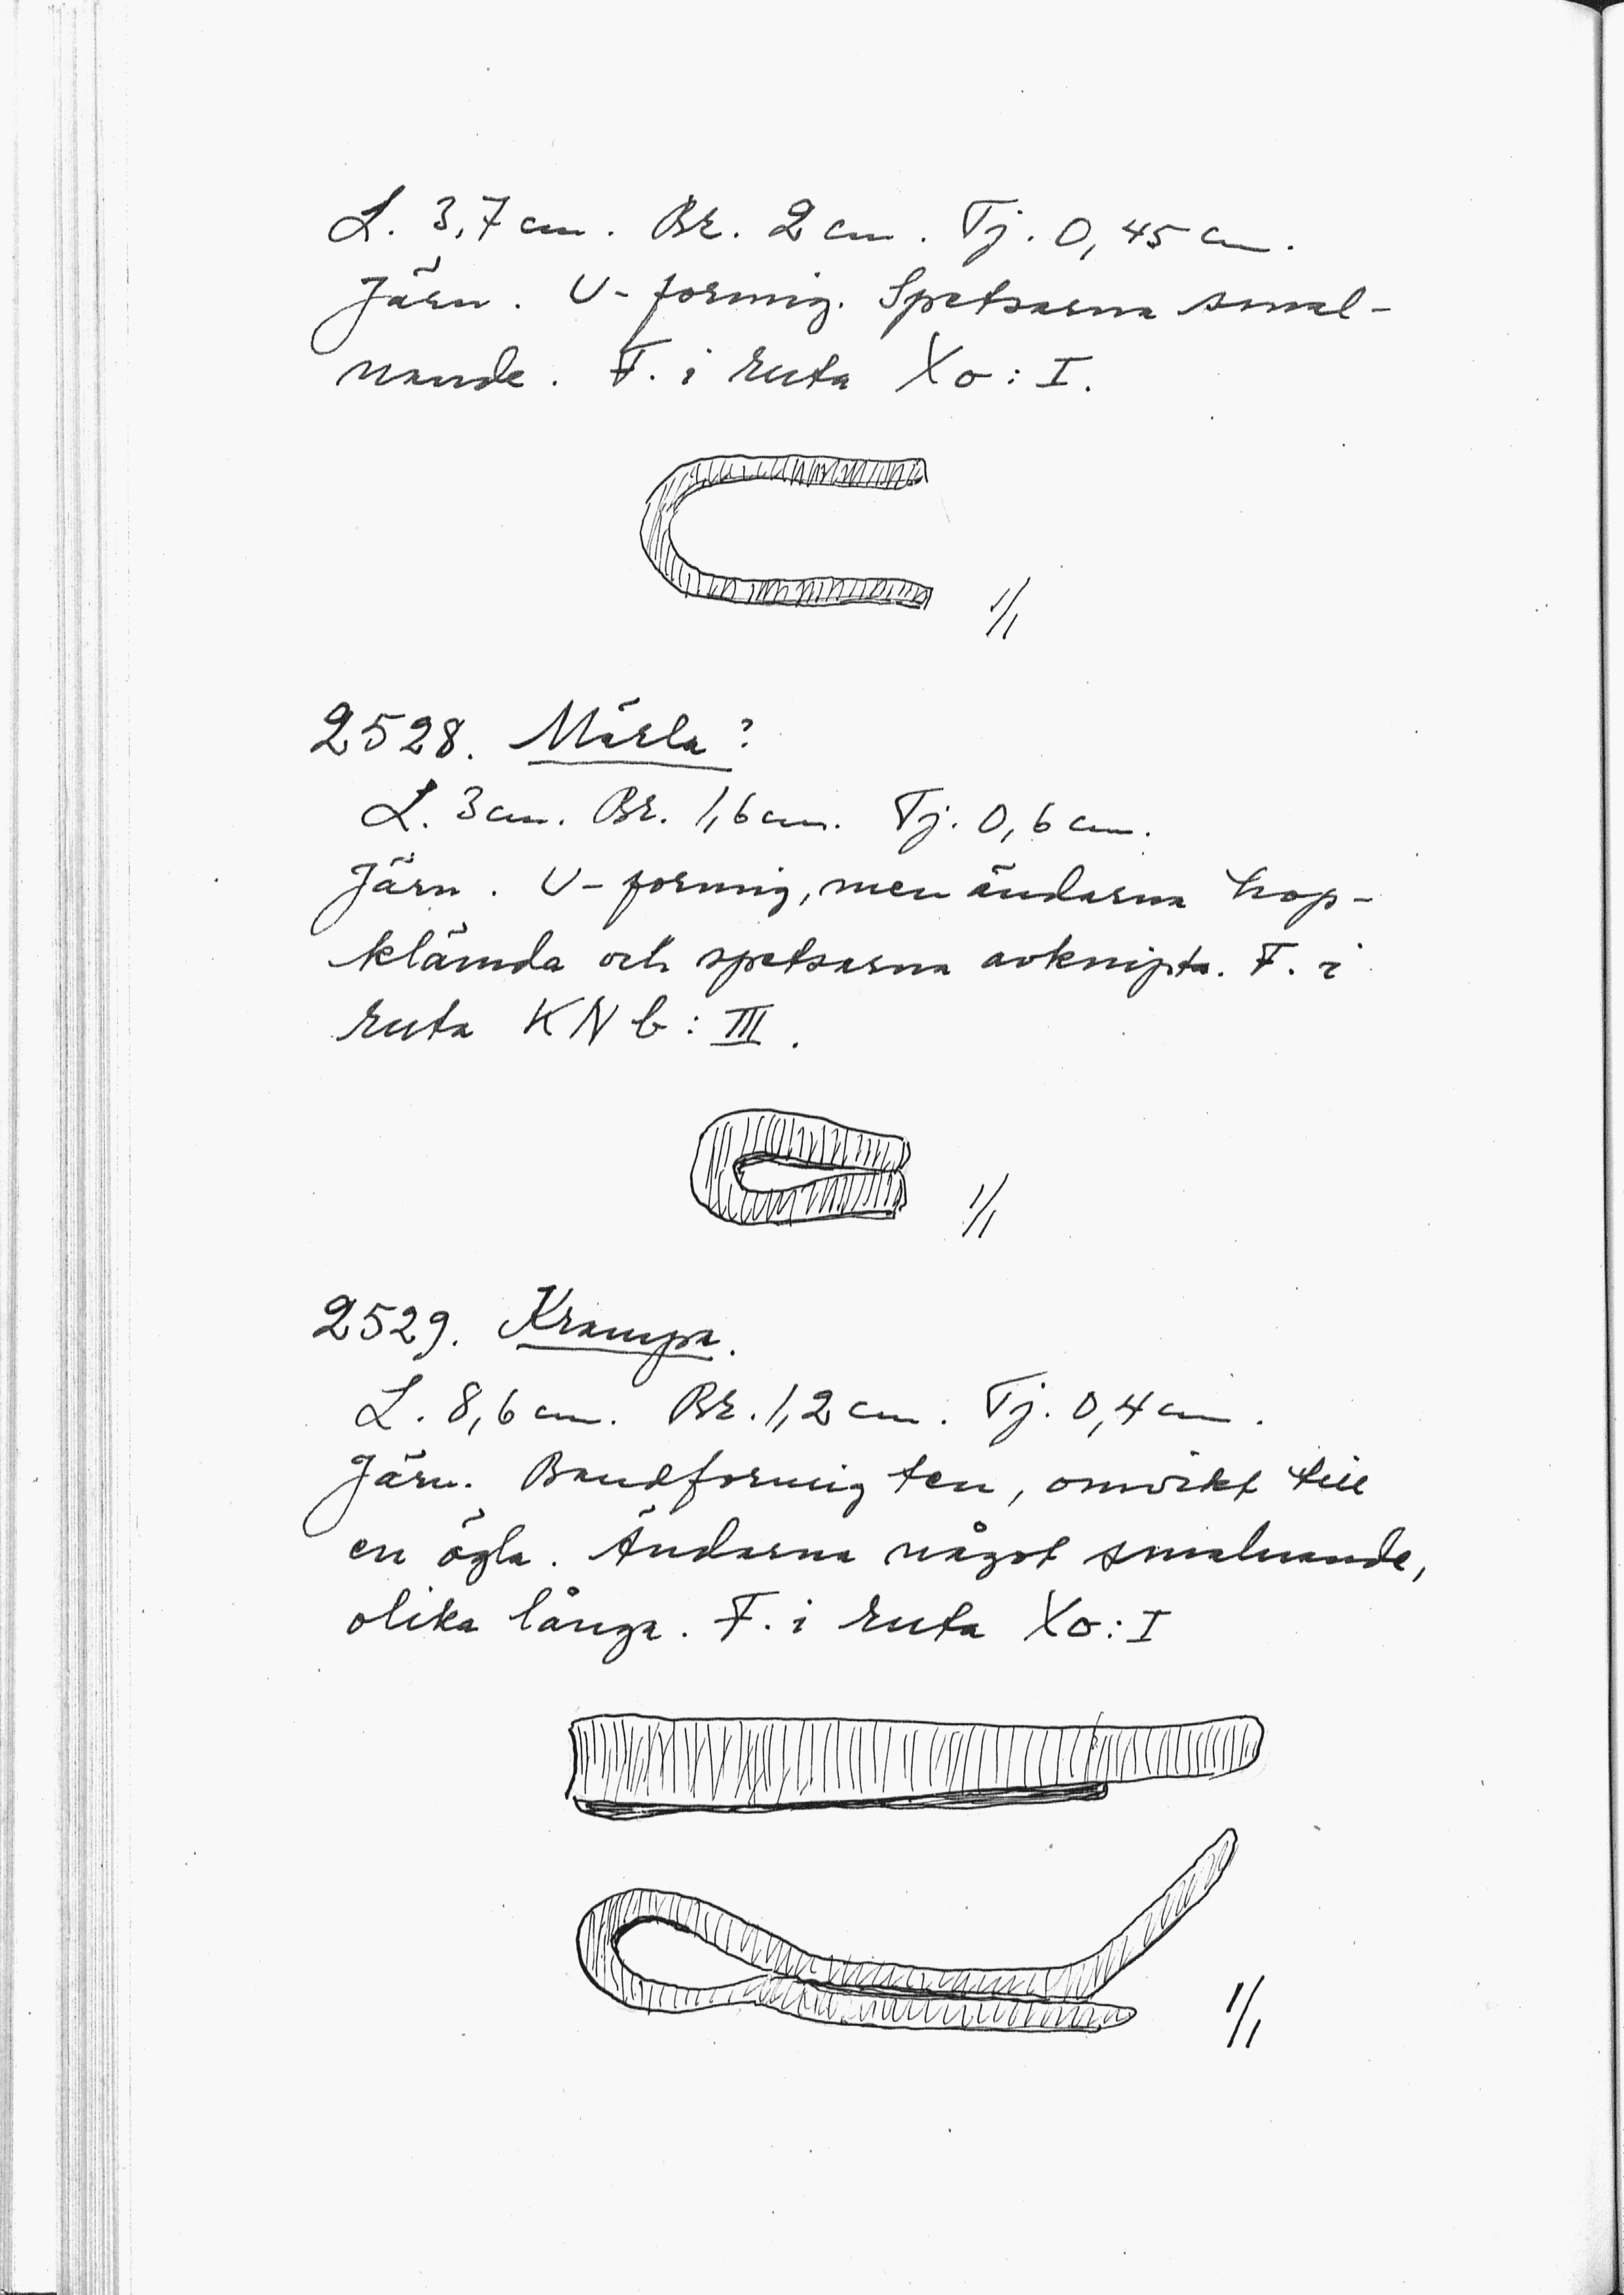 L. 3,7 cm. Br. 2 cm. Tj. 0,45 cm.
Järn. U-formig. Spetsarna smal-
nande. F. i ruta Xo: I.
1/1
2528. Märla?
L. 3 cm. Br. 1,6 cm. Tj. 0,6 cm.
Järn. U-formig, men ändarna hop-
klämda och spetsarna avknipta. F. i
ruta KNb: III.
1/1
2529. Krampa.
L. 8,6 cm. Br. 1,2 cm. Tj. 0,4 cm.
Järn. Bandformig ten, omvikt till
en ögla. Ändarna något smalnande,
olika långa. F. i ruta Xo: I
1/1